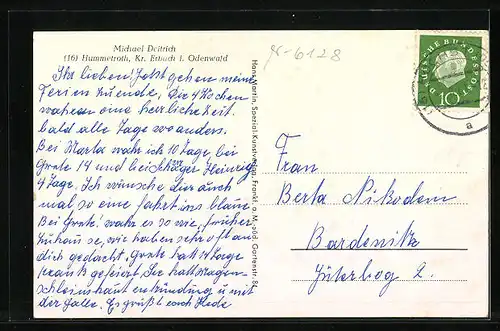 Michael Deitrich
(16) Hummetroth, Kr. Erbach i. Odenwald
gr-6128
Ihr lieben! Jetzt gehen meine
Ferien zuende. Die 4 Wochen
wahren eine herrliche Zeit.
bald alle Tage wo anders.
Bei Marta wahr ich 10 Tage, bei
Grete 14 und bei Heinrig
4 Tage. Ich wünsche dir auch
mal so eine fahrt ins blaue
Bei Grete wahr es so wie früher
zuhause, wir haben sehr oft an
dich gedacht, Grete hatt 14 Tage
krank gefeiert. Sie hatt Magen-
schleimhautentzündung u mit
der Galle. Es grüßt euch Hede
Hans Martin, Spezial-Kunstverlag, Frankf. a. M.-Süd, Gartenstr. 84
DEUTSCHE BUNDESPOST
10
a
Frau
Berta Nikodem
Bardenitz
Jüterbog 2.